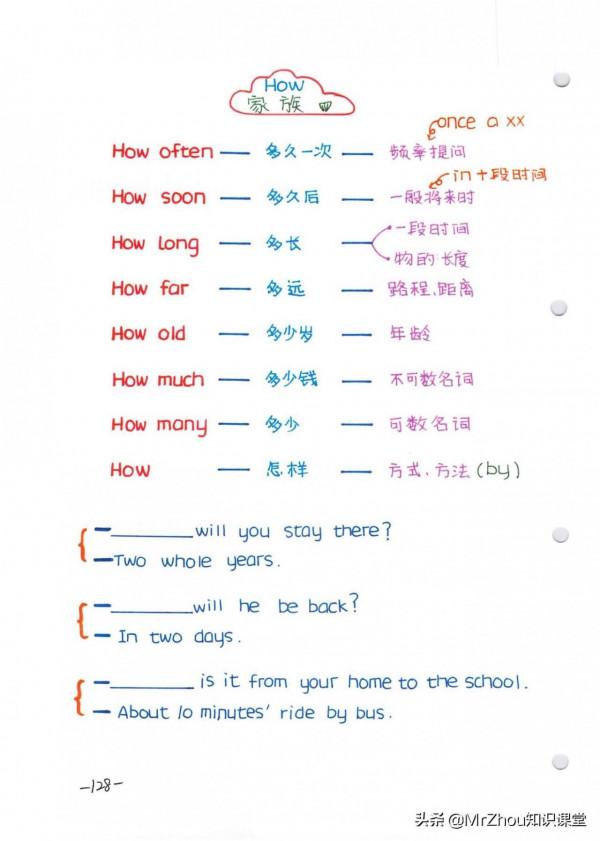 How
家族四
once a xx
How often — 多久一次 — 频率提问
in+段时间
How soon — 多久后 — 一般将来时
How long — 多长 — 一段时间
物的长度
How far — 多远 — 路程、距离
How old — 多少岁 — 年龄
How much — 多少钱 — 不可数名词
How many — 多少 — 可数名词
How — 怎样 — 方式、方法(by)
—________will you stay there?
—Two whole years.
—________will he be back?
— In two days.
—________ is it from your home to the school.
— About 10 minutes' ride by bus.
-128-
头条 @MrZhou知识课堂